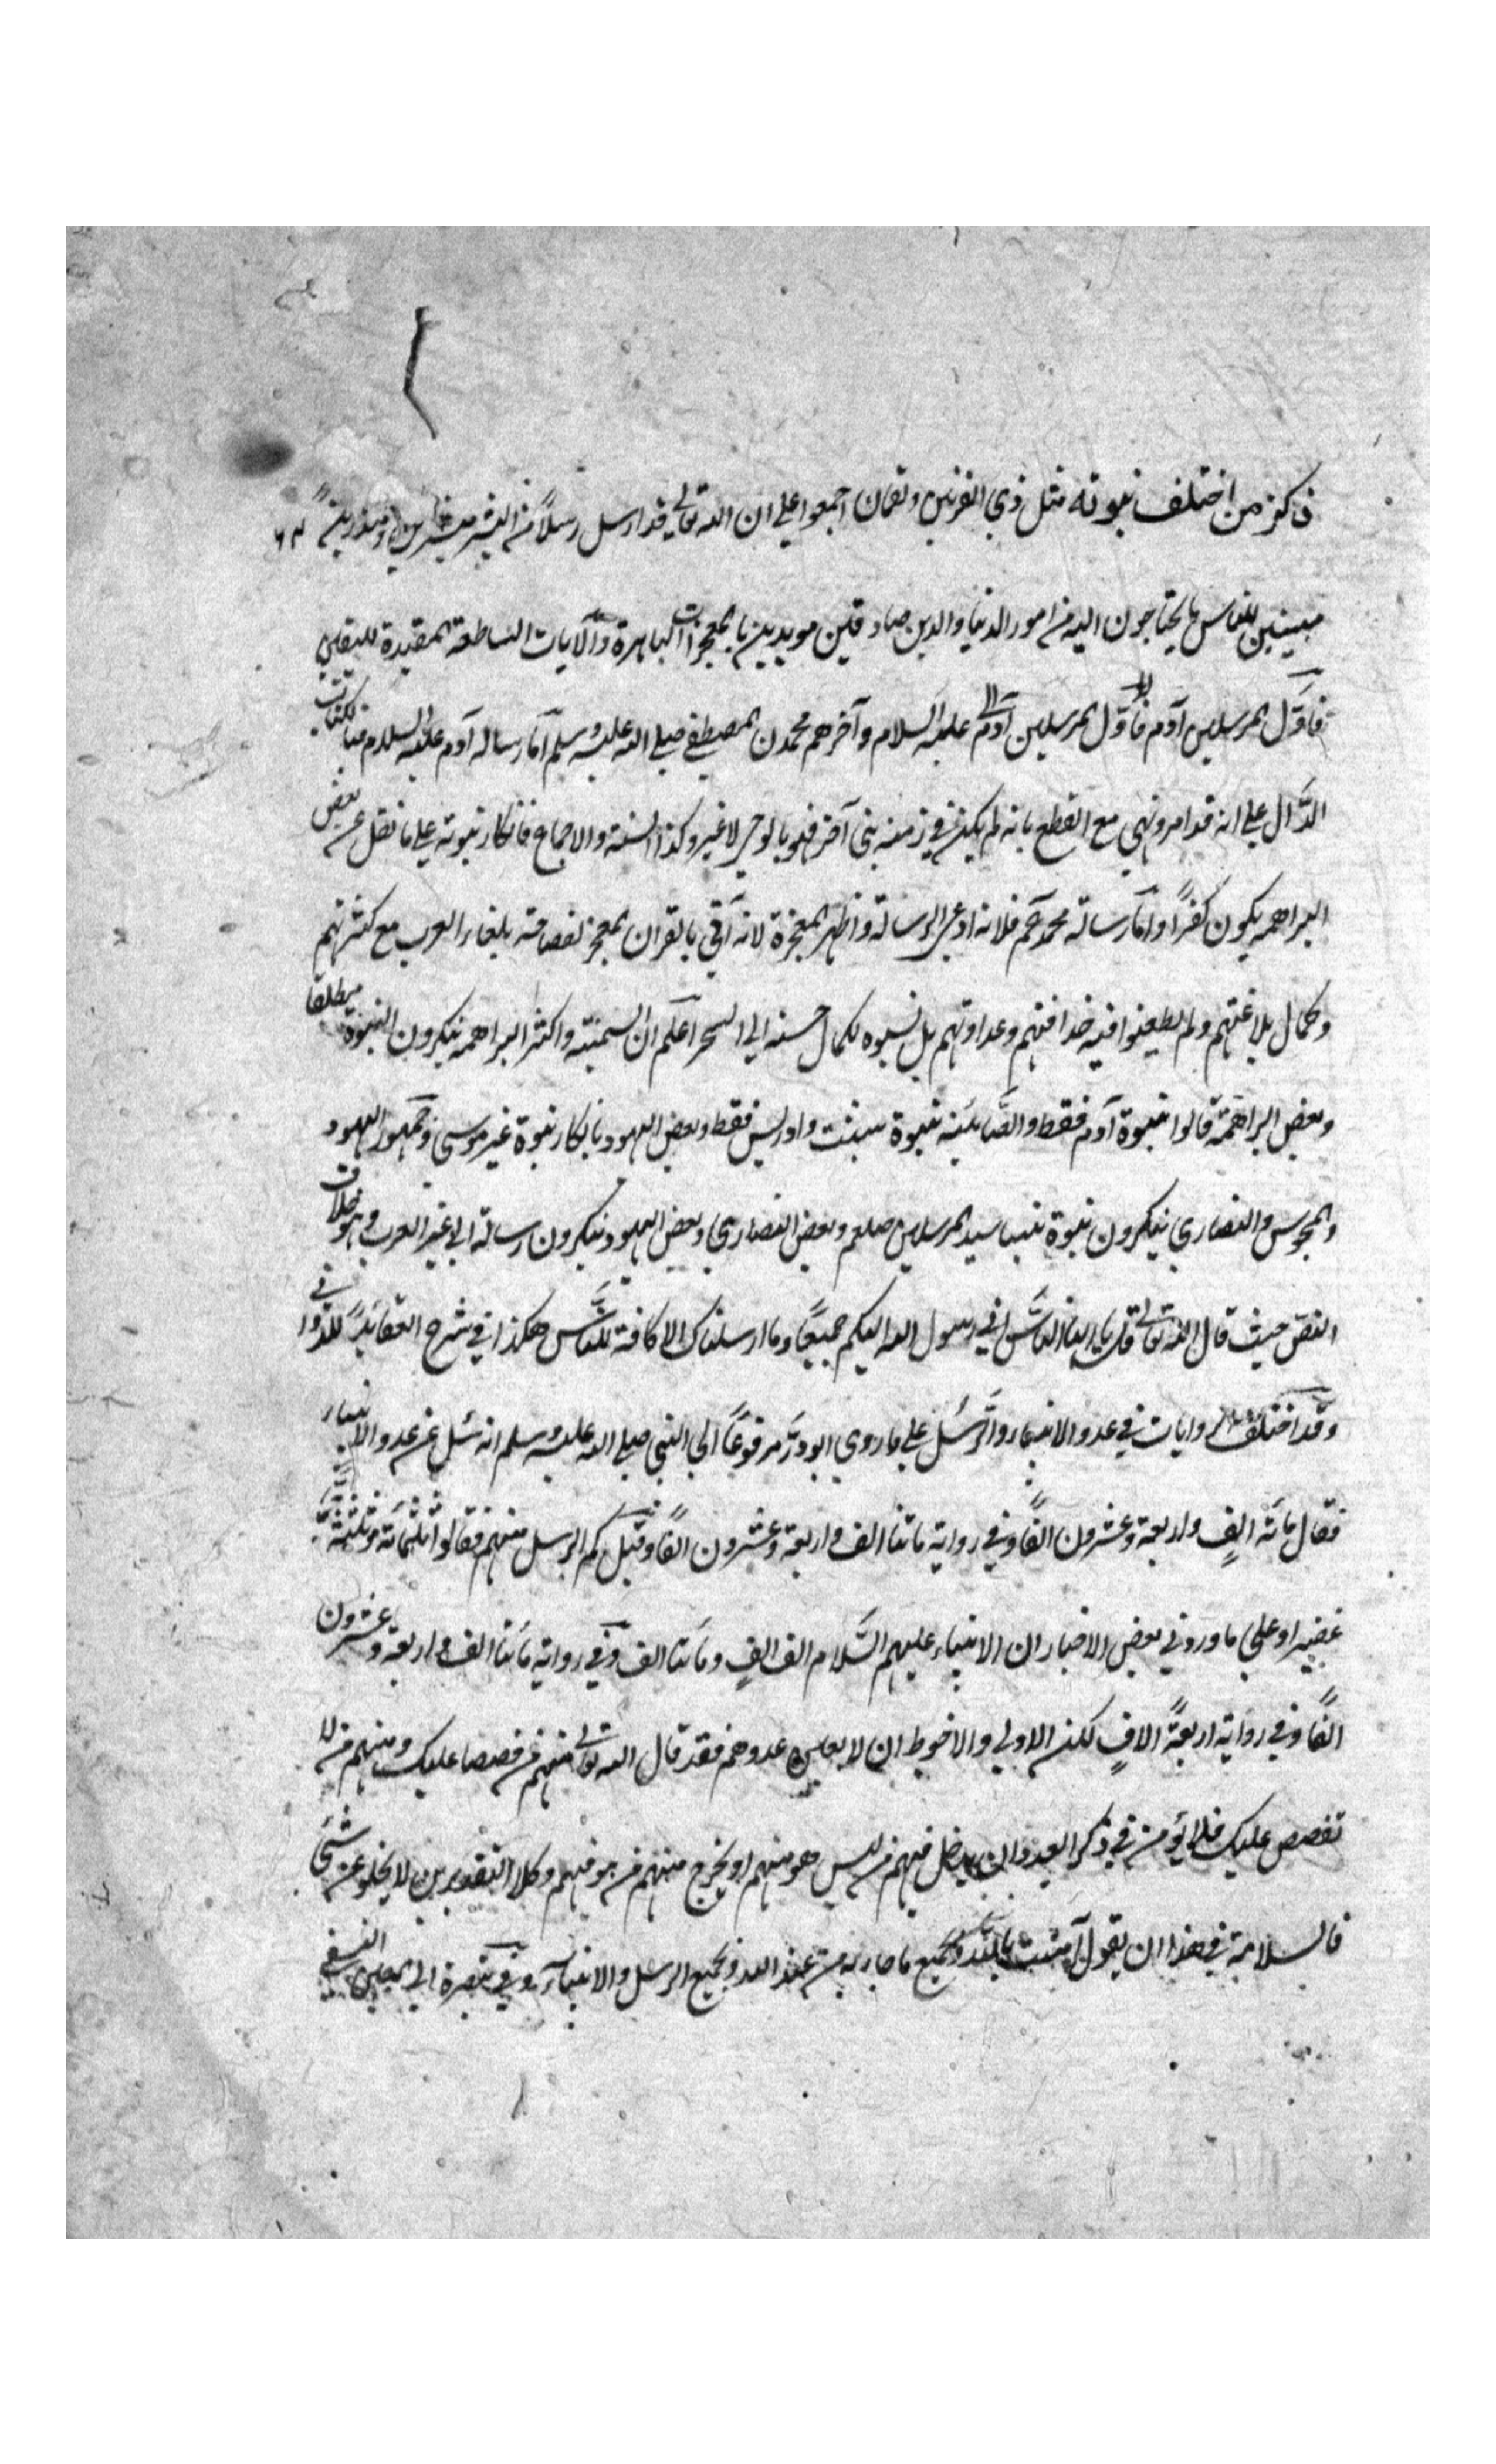 ذكر من اختلف نبوته مثل ذي القرنين ولقمان اجمعوا علي ان الله تعالي قد ارسل رسلاً من البشر مبشرين ومنذرين
مبينين للناس ما يحتاجون اليه من امور الدنيا والدين صادقين مويدين بالمعجزات الباهرة والآيات الساطعة المفيدة لليقين
فاوّل المرسلين آدم فاوّل المرسلين آدم عليه السلام وآخرهم محمدن المصطفي صلي الله عليه وسلم اما رسالة آدم عليه السلام فبالكتاب
الدّال علي انه قد امر ونهي مع القطع بانه لم يكن في زمنه نبي آخر فهو بالوحي لا غير وكذا السنة والاجماع فانكار نبوته علي ما نقل عن بعض
البراهمه يكون كفرًا واما رسالة محمد عم فلانه ادعي الرسالة واظهر المعجزة لانه آتي بالقران المعجز لفصاحته بلغاء العرب مع كثرتهم
وكمال بلاغتهم ولم يطيعنوا فيه حذاقتهم وعداوتهم بل نسبوه لكمال حسنه الي السحر اعلم ان السمنيّه واكثر البراهمه ينكرون النبوة مطلقا
وبعض البراهمة قالوا بنبوة آدم فقط والصّابئيه بنبوة شيث وادريس فقط وبعض اليهود بانكار نبوة غير موسي وجمهور اليهود
والمجوس والنصاري ينكرون نبوة نبينا سيد المرسلين صلعم وبعض النصاري وبعض اليهود ينكرون رسالة الي غير العرب وهو خلاف
النصّ حيث قال الله تعالي قل يا ايها النّاس اني رسول الله اليكم جميعًا وما ارسلناك الا كافة للنّاس هكذا في شرح العقائد للدّواني
وقد اختلف الروايات في عدد الانبياء والرّسل علي ما روي ابو ذر مرفوعًا الي النبي صلي الله عليه وسلم انه سئل عن عدد الانبياء
فقال مائة الفٍ واربعة وعشرون الفًا وفي رواية مائتا الف واربعة وعشرون الفًا وقيل كم الرسل منهم فقالوا ثلثمائة وثلثة عشر
غفيرا وعلي ما ورد في بعض الاخبار ان الانبياء عليهم السّلام الف الفٍ ومائتا الف وفي رواية مائتا الف واربعة وعشرون
الفًا وفي رواية اربعةً الافٍ لكن الاولي والاحوط ان لا يعين عددهم فقد قال الله تعالي منهم من قصصنا عليك ومنهم من لم
نقصص عليك فلا يؤمن في ذكر العدد ان يدخل فيهم من ليس هو منهم او يخرج منهم من هو فيهم وكلا التقديرين لا يخلو عن شئ
فالسلامة في هذا ان يقول آمنت بالله وبجميع ما جاء به من عند الله وبجميع الرسل والانبياء وفي تبصرة ابي المعين النسفي